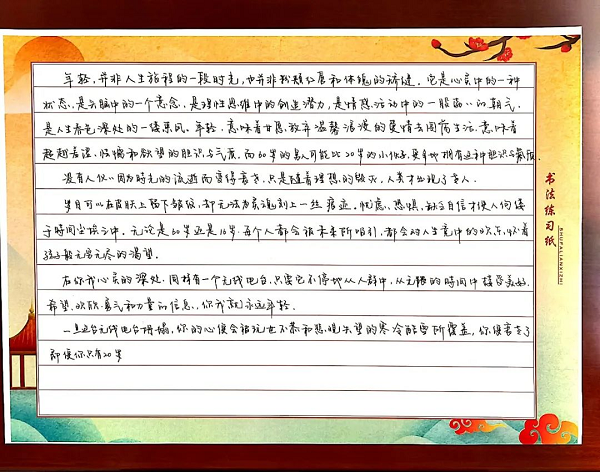 年轻,并非人生旅程的一段时光,也并非粉颊红唇和体魄的矫健。它是心灵中的一种
状态,是头脑中的一个意念,是理性思维中的创造潜力,是情感活动中的一股勃勃的朝气,
是人生春色深处的一缕东风。年轻,意味着甘愿放弃温馨浪漫的爱情去闯荡生活,意味着
超越羞涩、怯懦和欲望的胆识与气质。而60岁的男人可能比20岁的小伙子更多地拥有这种胆识与气质。
没有人仅仅因为时光的流逝而变得衰老,只是随着理想的毁灭,人类才出现了老人。
岁月可以在皮肤上留下皱纹,却无法为灵魂刻上一丝痕迹。忧虑、恐惧、缺乏自信才使人佝偻
于时间尘埃之中。无论是60岁还是16岁,每个人都会被未来所吸引,都会对人生竞争中的欢乐怀着
孩子般无穷无尽的渴望。
在你我心灵的深处,同样有一个无线电台,只要它不停地从人群中,从无限的时间中接受美好、
希望、欢欣、勇气和力量的信息,你我就永远年轻。
一旦这台无线电台坍塌,你的心便会被玩世不恭和悲观失望的寒冷酷雪所覆盖,你便衰老了
即使你只有20岁
书法练习纸
SHUFALIANXIZHI